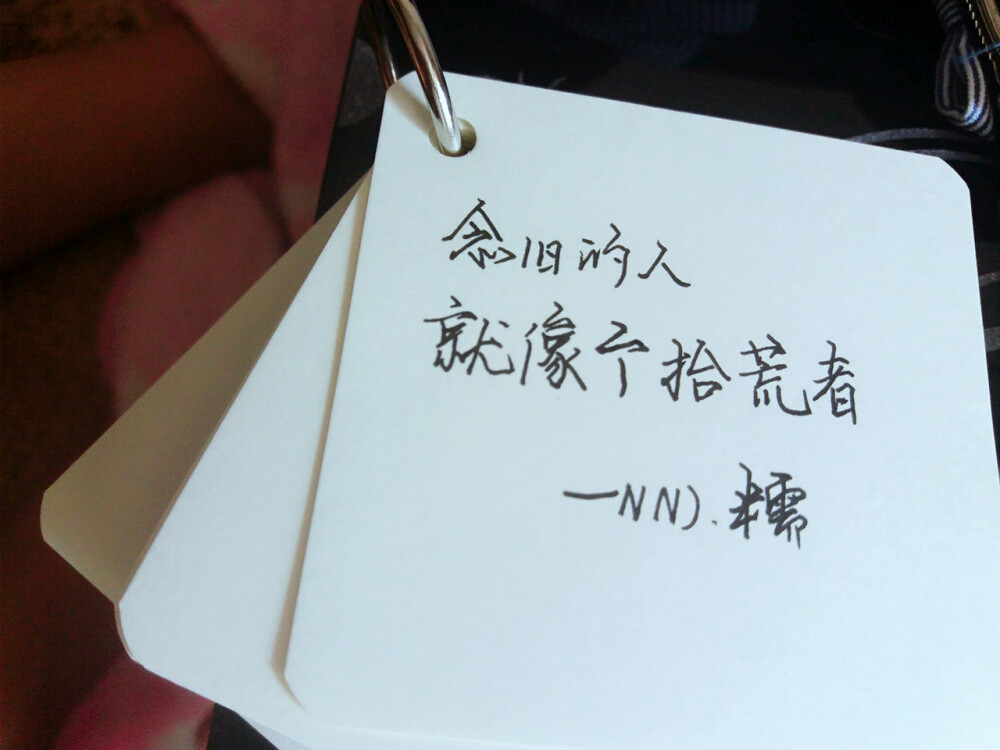 念旧的人
就像个拾荒者
一NN).糯